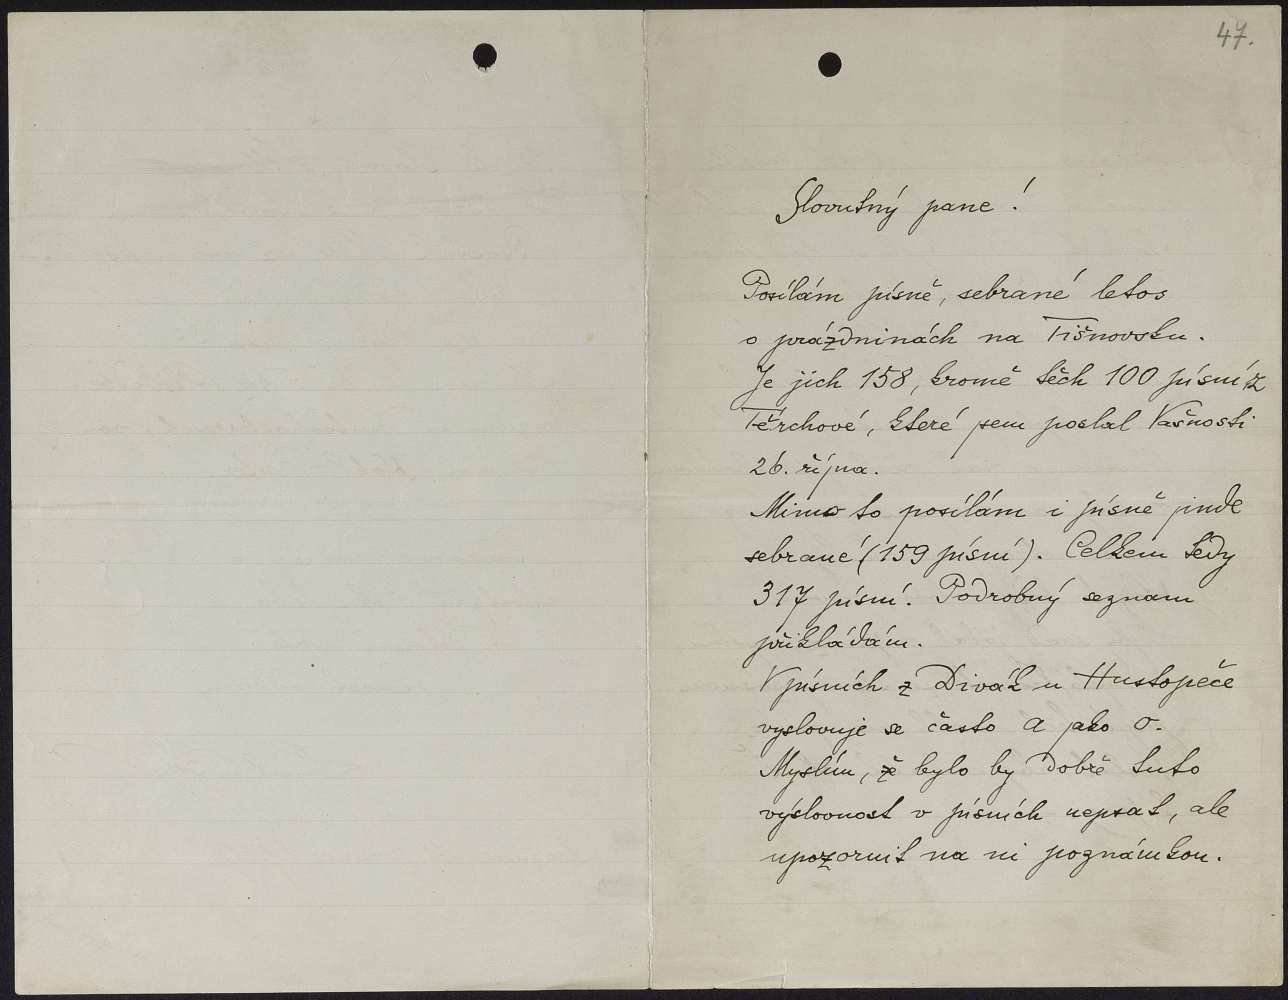 47.
Slovutný pane!
Posílám písně, sebrané letos
o prázdninách na Tišnovsku.
Je jich 158, kromě těch 100 písní z
Těrchové, které jsem poslal Vašnosti
26. října.
Mimo to posílám i písně jinde
sebrané (159 písní). Celkem tedy
317 písní. Podrobný seznam
přikládám.
V písních z Divák u Hustopeče
vyslovuje se často a jako o.
Myslím, že bylo by dobře tuto
výslovnost v písních nepsat, ale
upozornit na ni poznámkou.